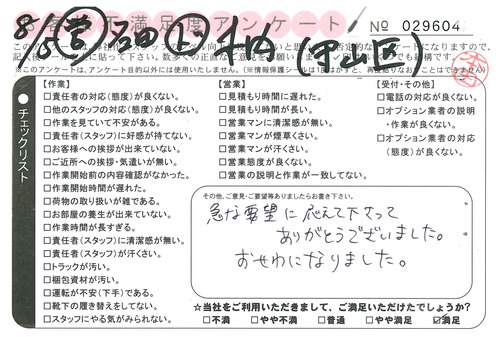 お客様不満足度アンケート
No 029604
8/5 営 石田 作 竹内 (守山区)
※このアンケートは、アンケート目的以外には使用いたしません。(※情報保護シールは1度はがすと、再度貼りなおすことはできません)
チェックリスト
【作業】
□責任者の対応(態度)が良くない。
□他のスタッフの対応(態度)が良くない。
□作業を見ていて不安がある。
□責任者(スタッフ)に好感が持てない。
□お客様への挨拶が出来ていない。
□ご近所への挨拶・気遣いが無い。
□作業開始前の内容確認がなかった。
□作業開始時間が遅れた。
□荷物の取り扱いが雑である。
□お部屋の養生が出来ていない。
□作業時間が長すぎる。
□責任者(スタッフ)に清潔感が無い。
□責任者(スタッフ)が汗くさい。
□トラックが汚い。
□梱包資材が汚い。
□運転が不安(下手)である。
□靴下の履き替えをしてない。
□スタッフにやる気がみられない。
【営業】
□見積もり時間に遅れた。
□見積もり時間が長い。
□営業マンに清潔感が無い。
□営業マンが煙草くさい。
□営業マンが汗くさい。
□営業態度が良くない。
□営業の説明と作業が一致してない。
【受付・その他】
□電話の対応が良くない。
□オプション業者の説明
・作業が良くない。
□オプション業者の対応
(態度)が良くない。
その他、ご意見・ご要望等ありましたらお書き下さい。
急な要望に応えて下さって
ありがとうございました。
おせわになりました。
☆当社をご利用いただきまして、ご満足いただけたでしょうか?
□不満 □やや不満 □普通 □やや満足 ☑満足